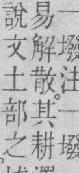 一墢注一墢
易解散。其耕
說文土部之